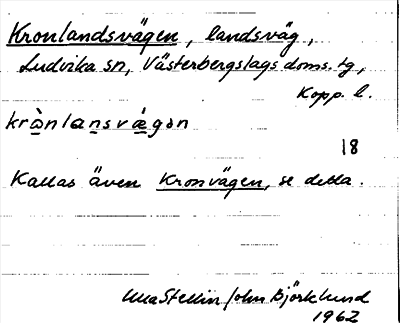 Kronlandsvägen, landsväg,
Ludvika sn, Västerbergslags doms. tg,
Kopp. l.
krònlansvägən
18
Kallas även Kronvägen, se detta.
Ulla Stellin / John Björklund
1962